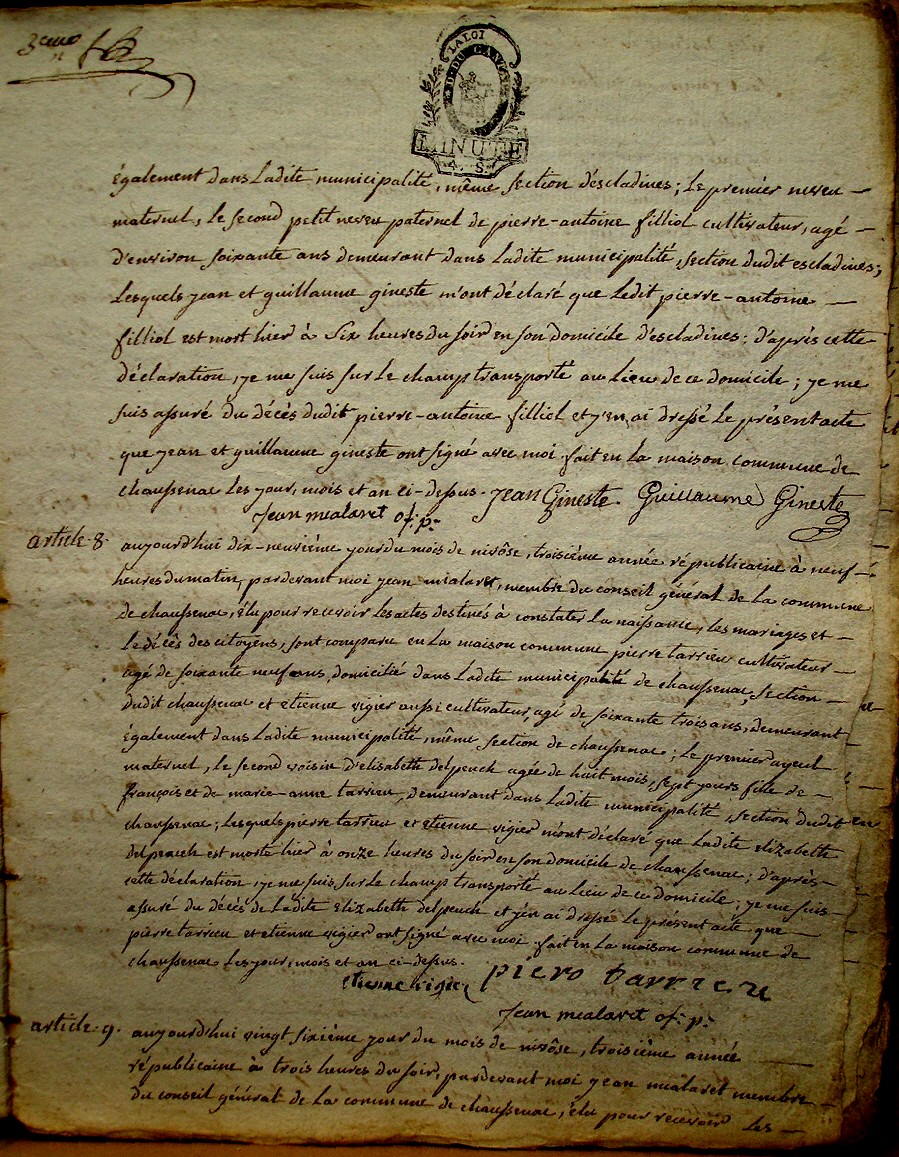 3eme
LA LOI
MINUTE
4. S.
également dans Ladite municipalité, même section d'escladines; Le premier neveu —
maternel, Le second petit neveu paternel de pierre-antoine filliol cultivateur, agé —
d'environ soixante ans demeurant dans Ladite municipalité, section dudit escladines;
Lesquels jean et guillaume gineste m'ont déclaré que Ledit pierre-antoine —
filliol est mort hier à Six heures du soir en son domicile d'escladines; d'après cette
déclaration, je me suis sur Le champ transporté au Lieu de ce domicile; je me
suis assuré du décès dudit pierre-antoine filliol et j'en ai dressé Le présent acte
que jean et guillaume gineste ont signé avec moi. fait en La maison commune de
chaussenac Les jour, mois et an ci-dessus. Jean Gineste. Guillaume Gineste
Jean mealaret of: p:
article 8. aujourd'hui dix-neuvième jour du mois de nivôse, troisième année républicaine à neuf —
heures du matin, pardevant moi jean mialaret, membre du conseil général de La commune
de chaussenac, élu pour recevoir Les actes destinés à constater La naissance, les mariages et —
Le décès des citoyens, sont comparu en La maison commune pierre tarrieu cultivateur —
agé de soixante neuf ans, domicilié dans Ladite municipalité de chaussenac, section —
dudit chaussenac et etienne vigier aussi cultivateur, agé de soixante trois ans, demeurant —
également dans Ladite municipalité, même section de chaussenac; Le premier ayeul
maternel, Le second voisin d'elisabeth delpeuch agée de huit mois, sept jours fille de —
françois et de marie-anne tarrieu, demeurant dans Ladite municipalité, section dudit
chaussenac; Lesquels pierre tarrieu et etienne vigier m'ont déclaré que Ladite elizabeth
delpeuch est morte hier à onze heures du soir en son domicile de chaussenac; d'après —
cette déclaration, je me suis, sur Le champ transporté au Lieu de ce domicile; je me suis —
assuré du décès de Ladite Elizabeth delpeuch et j'en ai dressé Le présent acte que —
pierre tarrieu et etienne vigier ont signé avec moi. fait en La maison commune de
chaussenac Les jour, mois et an ci-dessus.
etienne vigier piero tarrieu
Jean mealaret of: p:
article 9. aujourd'hui vingt sixième jour du mois de nivôse, troisième année —
républicaine à trois heures du soir, pardevant moi jean mialaret membre
du conseil général de La commune de chaussenac, élu pour recevoir Les —